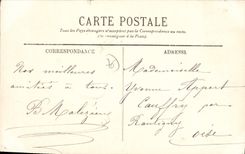 CARTE POSTALE
Tous les Pays étrangers n'acceptent pas la Correspondance au recto.
(Se renseigner à la Poste).
CORRESPONDANCE
ADRESSE
Nos meilleures
amitiés à tous.
Mademoiselle
Yvonne Appert
Cauffry par
Rantigny
Oise